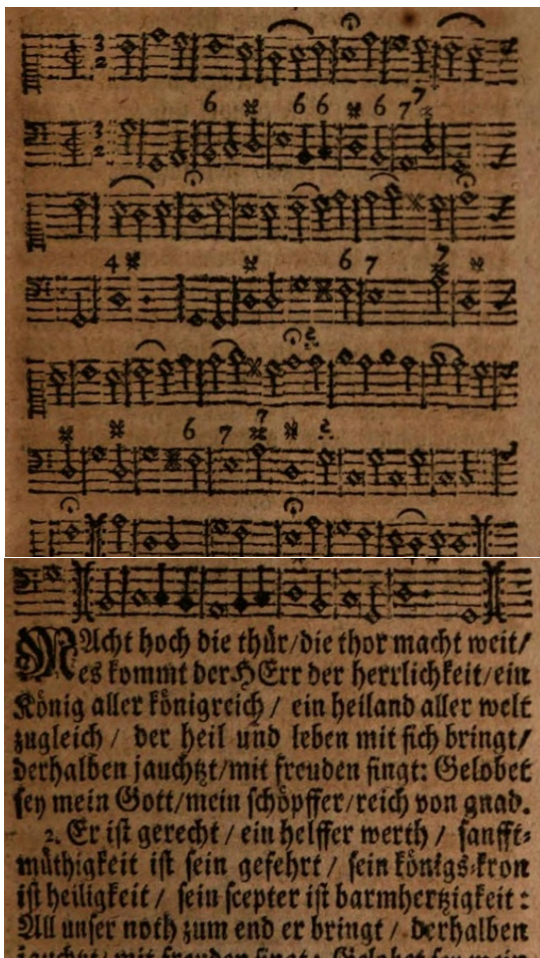 3
2
6 6 6 6 7 7
3
2
4 6 7 7
6 7 7
MAcht hoch die thür/die thor macht weit/
es kommt der HErr der herrlichkeit/ein
König aller königreich / ein heiland aller welt
zugleich / der heil und leben mit sich bringt/
derhalben jauchtzt/mit freuden singt: Gelobet
sey mein Gott/mein schöpffer/reich von gnad.
2. Er ist gerecht / ein helffer werth / sanfft-
müthigkeit ist sein gefehrt / sein königs-kron
ist heiligkeit / sein scepter ist barmhertzigkeit:
All unser noth zum end er bringt / derhalben
jauchtzt/mit freuden singt: Gelobet sey mein